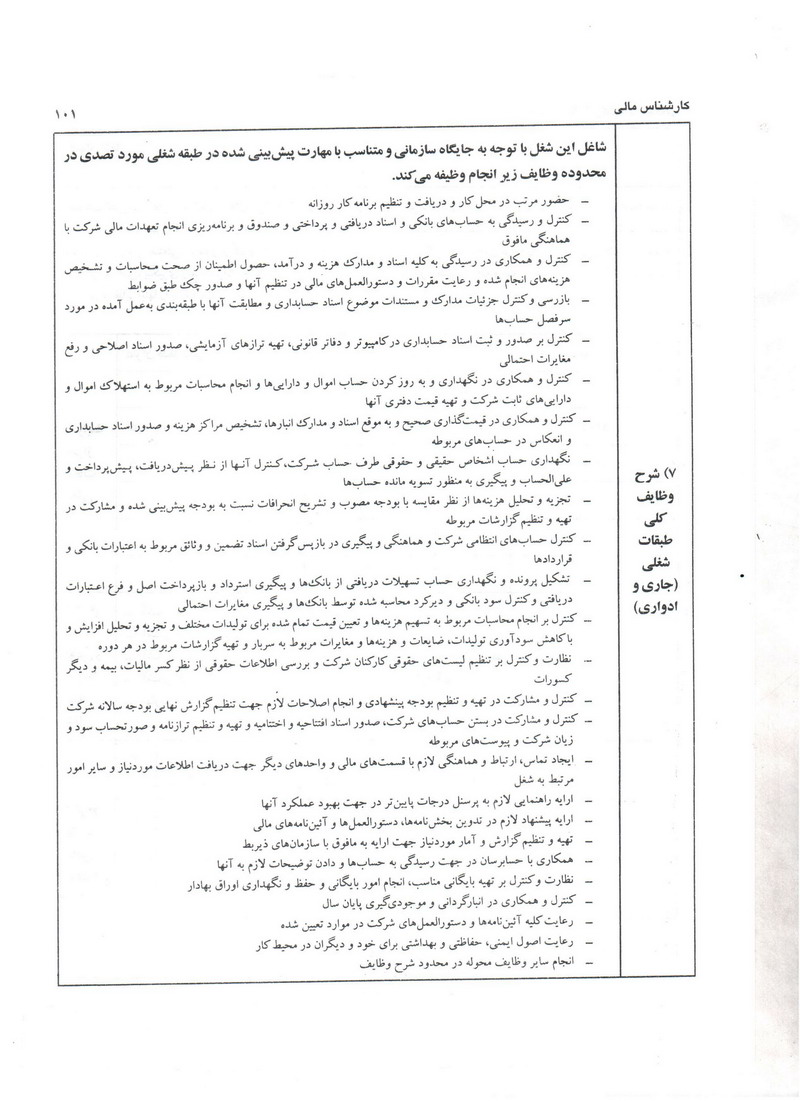 کارشناس مالی
۱۰۱
شاغل این شغل با توجه به جایگاه سازمانی و متناسب با مهارت پیش‌بینی شده در طبقه شغلی مورد تصدی در
محدوده وظایف زیر انجام وظیفه می‌کند.
– حضور مرتب در محل کار و دریافت و تنظیم برنامه کار روزانه
– کنترل و رسیدگی به حساب‌های بانکی و اسناد دریافتی و پرداختی و صندوق و برنامه‌ریزی انجام تعهدات مالی شرکت با
هماهنگی مافوق
– کنترل و همکاری در رسیدگی به کلیه اسناد و مدارک هزینه و درآمد، حصول اطمینان از صحت محاسبات و تشخیص
هزینه‌های انجام شده و رعایت مقررات و دستورالعمل‌های مالی در تنظیم آنها و صدور چک طبق ضوابط
– بازرسی و کنترل جزئیات مدارک و مستندات موضوع اسناد حسابداری و مطابقت آنها با طبقه‌بندی به‌عمل آمده در مورد
سرفصل حساب‌ها
– کنترل بر صدور و ثبت اسناد حسابداری در کامپیوتر و دفاتر قانونی، تهیه ترازهای آزمایشی، صدور اسناد اصلاحی و رفع
مغایرات احتمالی
– کنترل و همکاری در نگهداری و به روز کردن حساب اموال و دارایی‌ها و انجام محاسبات مربوط به استهلاک اموال و
دارایی‌های ثابت شرکت و تهیه قیمت دفتری آنها
– کنترل و همکاری در قیمت‌گذاری صحیح و به موقع اسناد و مدارک انبارها، تشخیص مراکز هزینه و صدور اسناد حسابداری
و انعکاس در حساب‌های مربوطه
– نگهداری حساب اشخاص حقیقی و حقوقی طرف حساب شرکت، کنترل آنها از نظر پیش‌دریافت، پیش‌پرداخت و
علی‌الحساب و پیگیری به منظور تسویه مانده حساب‌ها
– تجزیه و تحلیل هزینه‌ها از نظر مقایسه با بودجه مصوب و تشریح انحرافات نسبت به بودجه پیش‌بینی شده و مشارکت در
تهیه و تنظیم گزارشات مربوطه
– کنترل حساب‌های انتظامی شرکت و هماهنگی و پیگیری در بازپس گرفتن اسناد تضمین و وثائق مربوط به اعتبارات بانکی و
قراردادها
– تشکیل پرونده و نگهداری حساب تسهیلات دریافتی از بانک‌ها و پیگیری استرداد و بازپرداخت اصل و فرع اعتبارات
دریافتی و کنترل سود بانکی و دیرکرد محاسبه شده توسط بانک‌ها و پیگیری مغایرات احتمالی
– کنترل بر انجام محاسبات مربوط به تسهیم هزینه‌ها و تعیین قیمت تمام شده برای تولیدات مختلف و تجزیه و تحلیل افزایش و
یا کاهش سودآوری تولیدات، ضایعات و هزینه‌ها و مغایرات مربوط به سربار و تهیه گزارشات مربوط در هر دوره
– نظارت و کنترل بر تنظیم لیست‌های حقوقی کارکنان شرکت و بررسی اطلاعات حقوقی از نظر کسر مالیات، بیمه و دیگر
کسورات
– کنترل و مشارکت در تهیه و تنظیم بودجه پیشنهادی و انجام اصلاحات لازم جهت تنظیم گزارش نهایی بودجه سالانه شرکت
– کنترل و مشارکت در بستن حساب‌های شرکت، صدور اسناد افتتاحیه و اختتامیه و تهیه و تنظیم ترازنامه و صورتحساب سود و
زیان شرکت و پیوست‌های مربوطه
– ایجاد تماس، ارتباط و هماهنگی لازم با قسمت‌های مالی و واحدهای دیگر جهت دریافت اطلاعات موردنیاز و سایر امور
مرتبط به شغل
– ارایه راهنمایی لازم به پرسنل درجات پایین‌تر در جهت بهبود عملکرد آنها
– ارایه پیشنهاد لازم در تدوین بخش‌نامه‌ها، دستورالعمل‌ها و آئین‌نامه‌های مالی
– تهیه و تنظیم گزارش و آمار موردنیاز جهت ارایه به مافوق یا سازمان‌های ذیربط
– همکاری با حسابرسان در جهت رسیدگی به حساب‌ها و دادن توضیحات لازم به آنها
– نظارت و کنترل بر تهیه بایگانی مناسب، انجام امور بایگانی و حفظ و نگهداری اوراق بهادار
– کنترل و همکاری در انبارگردانی و موجودی‌گیری پایان سال
– رعایت کلیه آئین‌نامه‌ها و دستورالعمل‌های شرکت در موارد تعیین شده
– رعایت اصول ایمنی، حفاظتی و بهداشتی برای خود و دیگران در محیط کار
– انجام سایر وظایف محوله در محدود شرح وظایف
۷) شرح
وظایف
کلی
طبقات
شغلی
(جاری و
ادواری)